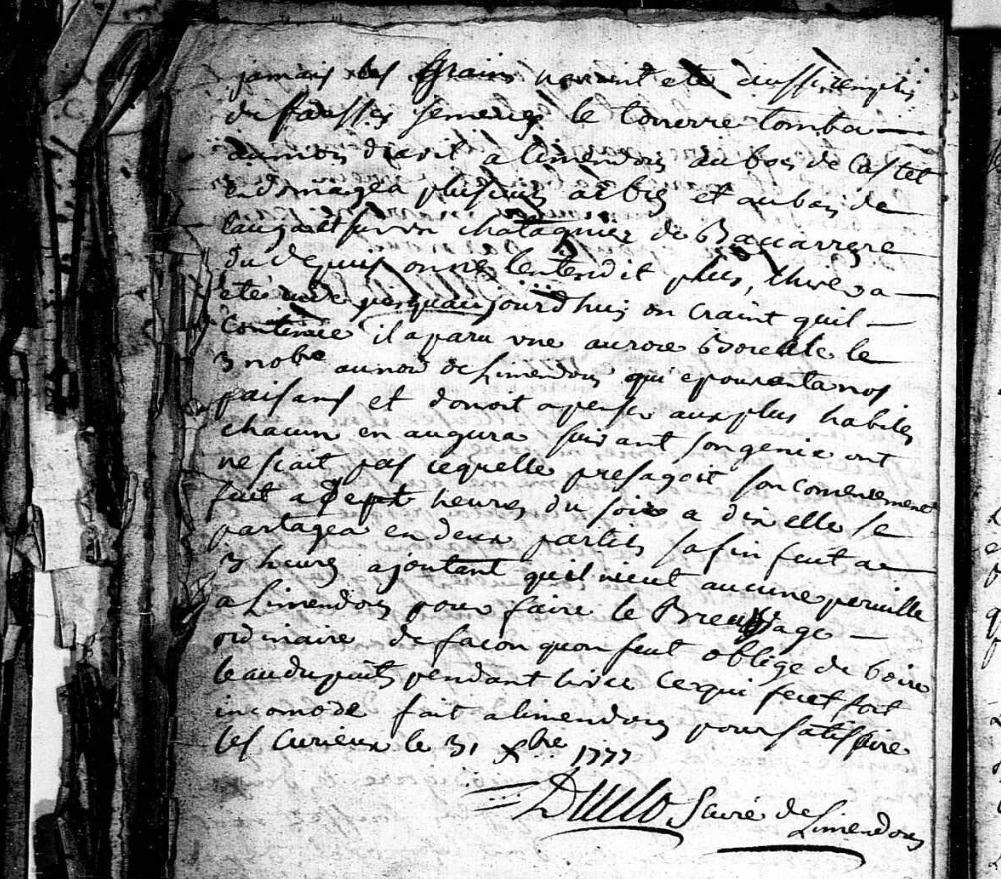 jamais les grains n'avoint eté aussi remplis
de fausses semences le tonerre tomba
au mois d'avril a limendous au bois de Castet
endomagea plusieurs arbres et au bois de
laugar et sur un chatagnier de Bacarrere
du depuis on ne lentendit plus, lhiver a
eté jusquaujourdhui on craint quil
continue il a paru une aurore Boreale le
3 nobre au nord de Limendous qui epouventa nos
paisans et donoit a penser aux plus habiles
chacun en augura suivant son genie ont
ne scait pas cequelle presagoit son comencement
feut a sept heures du soir a dix elle se
partagea en deux parties sa fin feut a
3 heures ajoutant quil nieut aucune peruille
a Limendous pour faire le Breuvage
ordinaire de facon quon feut obligé de boire
leau du puits pendant livie cequi feut fort
incomode fait a limendous pour satisfaire
les curieux le 31 Xbre 1777
Duclo curé de
Limendous